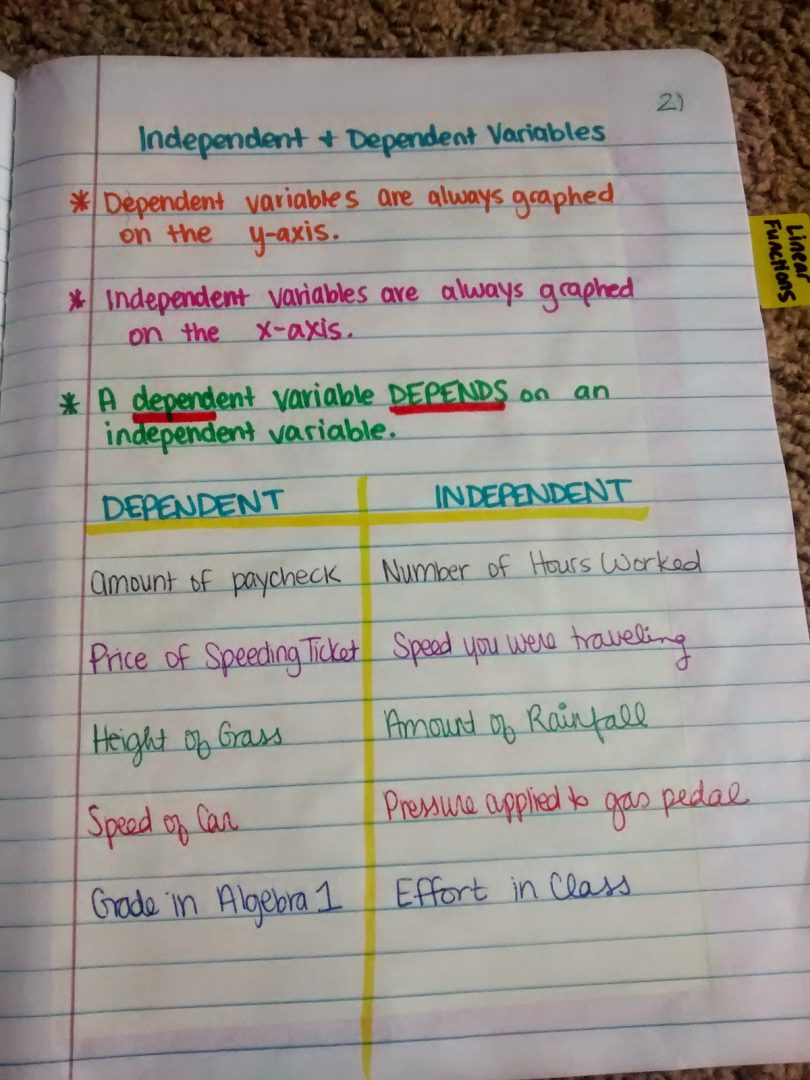 21
Independent + Dependent Variables
* Dependent variables are always graphed
on the y-axis.
Linear
Functions
* Independent variables are always graphed
on the x-axis.
* A dependent variable DEPENDS on an
independent variable.
DEPENDENT INDEPENDENT
Amount of paycheck Number of Hours Worked
Price of Speeding Ticket Speed you were traveling
Height of Grass Amount of Rainfall
Speed of Car Pressure applied to gas pedal
Grade in Algebra 1 Effort in Class